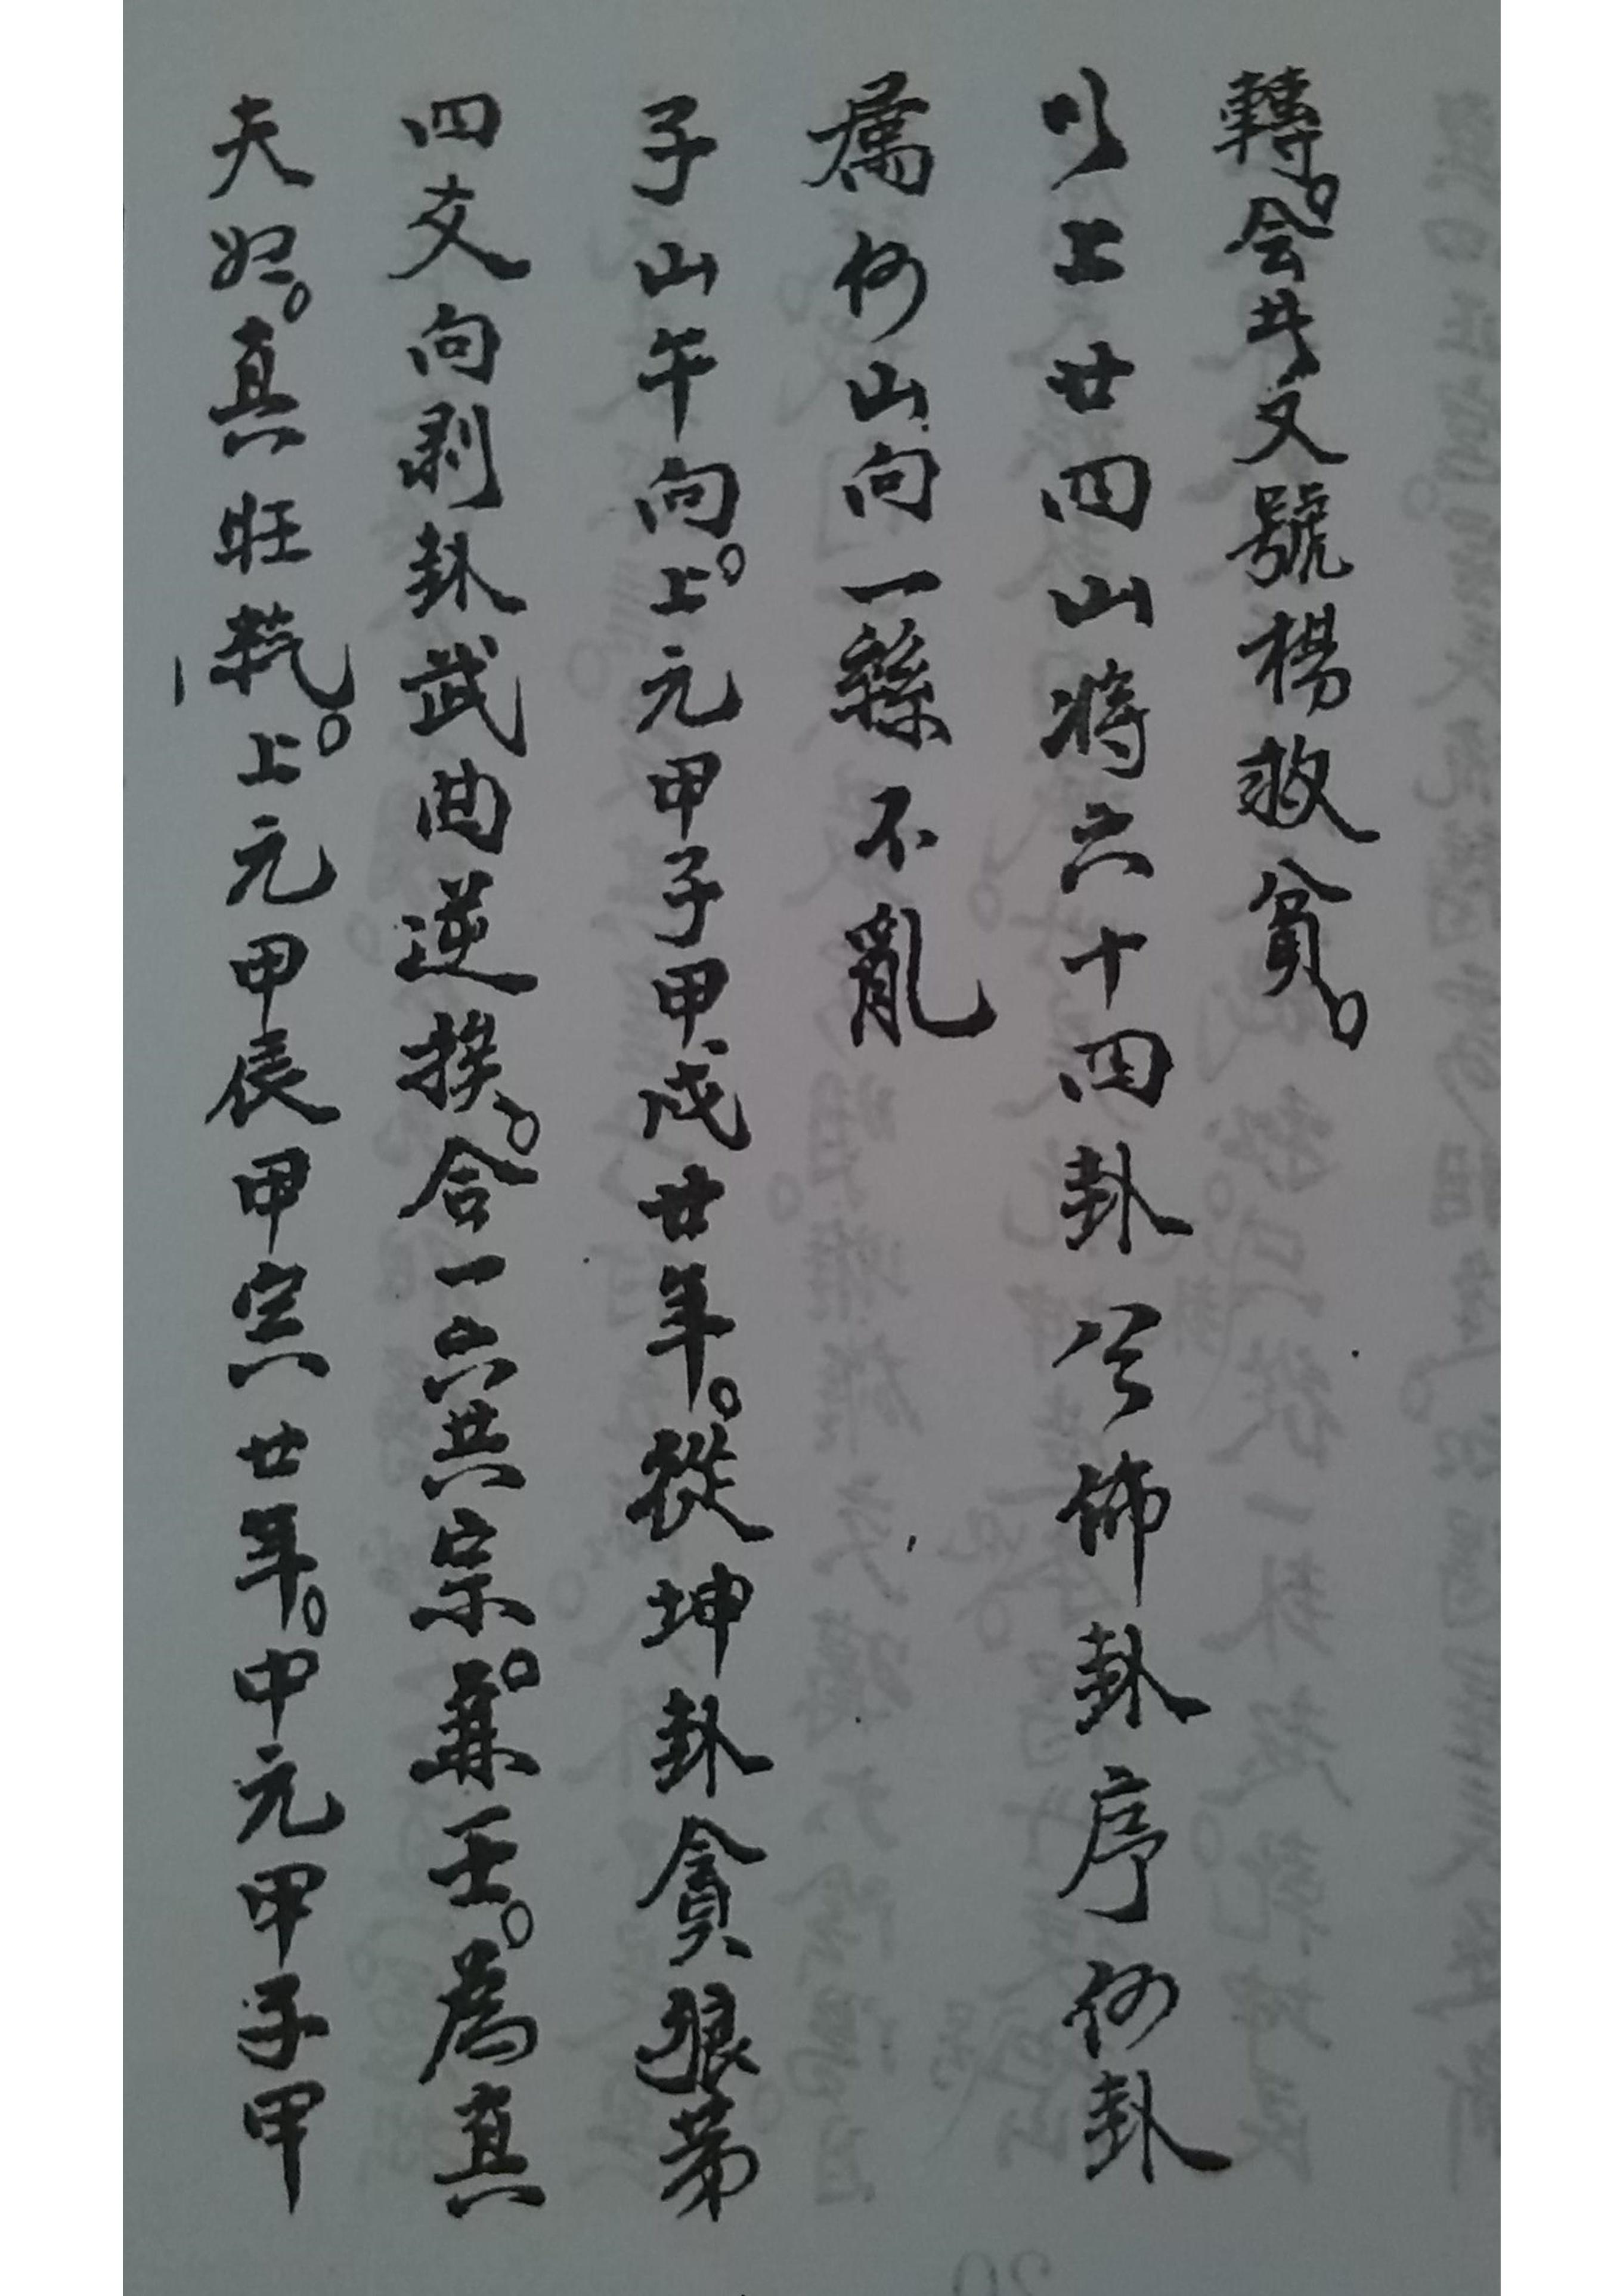 轉。会此又號楊救貧。
以上廿四山将六十四卦分佈卦序何卦
屬何山向一絲不亂
子山午向。上元甲子甲戌廿年。從坤卦貪狼第
四爻向剥卦武曲逆挨。合一六共宗。兼壬。為真
夫妇。真旺氣。上元甲辰甲寅廿年。中元甲子甲